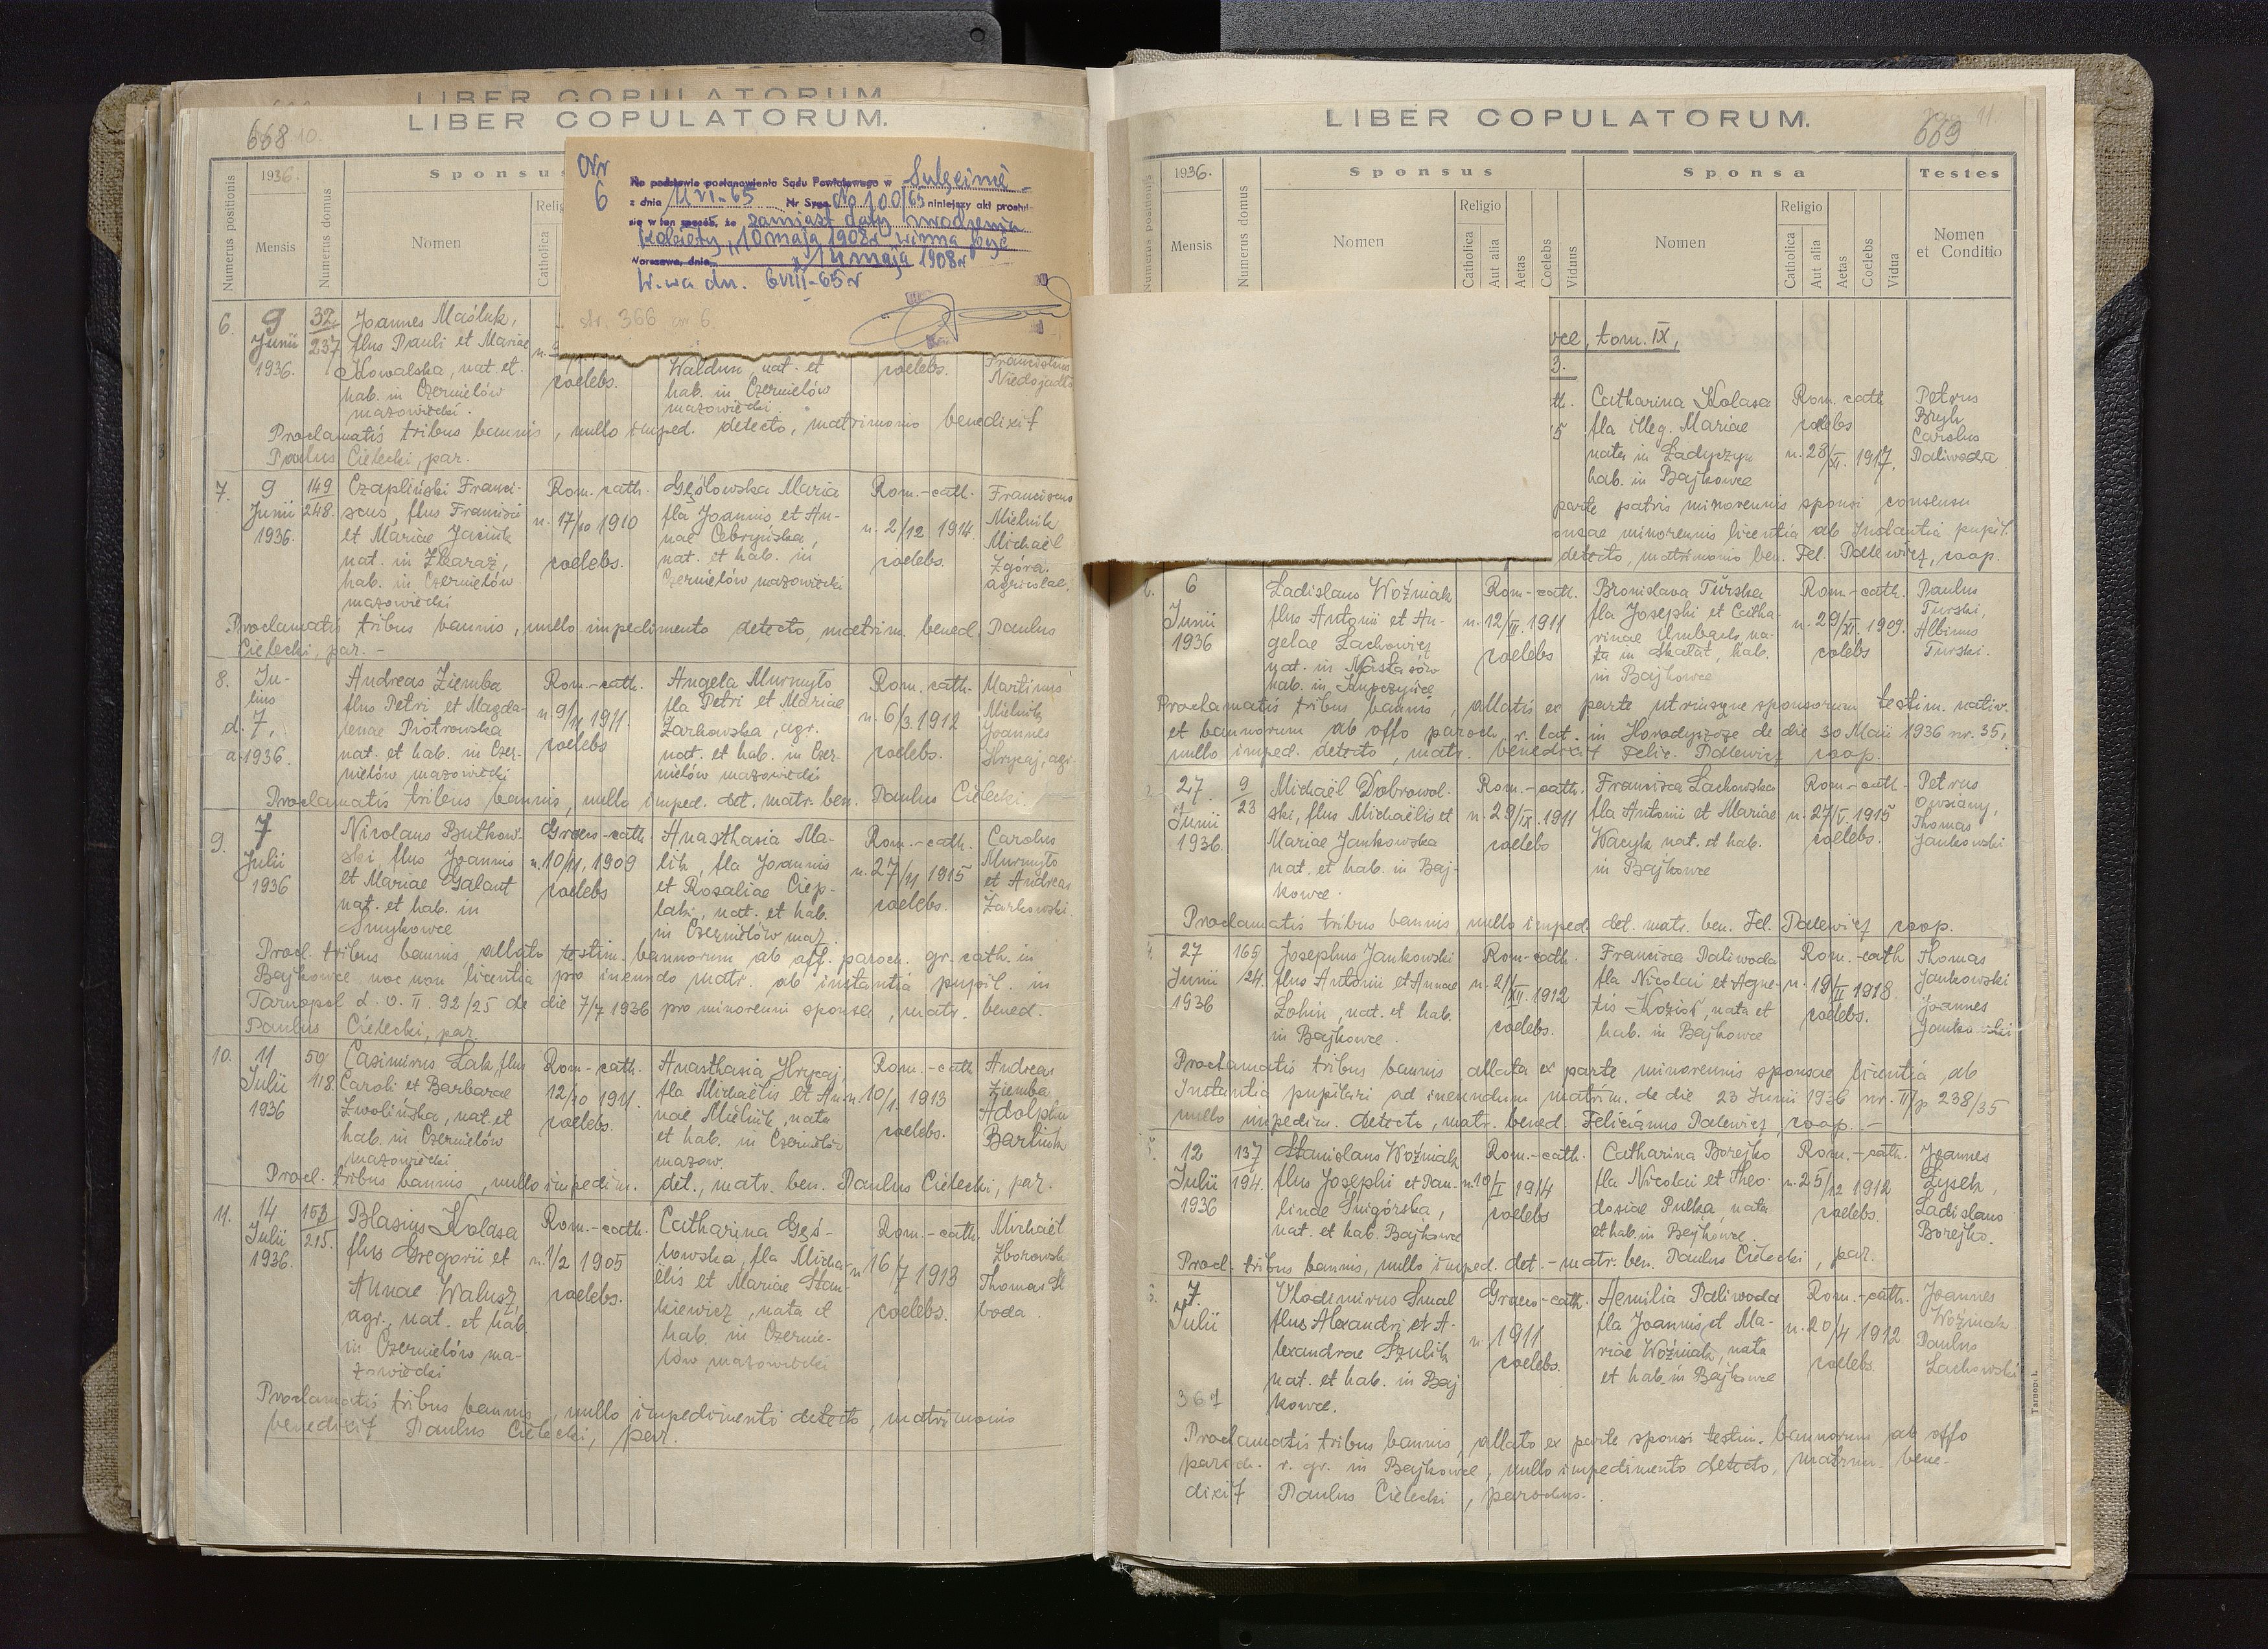 LIBER COPULATORUM.
LIBER COPULATORUM.
668 10.
1936.
Sponsus
Numerus positionis
Mensis
Numerus domus
Nomen
Catholica
Nr
6
Na podstawie postanowienia Sądu Powiatowego w Sulęcinie
z dnia 11.VI-65 Nr Spraw. No 100/65 niniejszy akt prostuje
się w ten sposób, że zamiast daty urodzenia
kobiety "10 maja 1908r winna być
Warszawa, dnia 14 maja 1908r
W-wa dn. 6VIII-65r
str. 366 nr 6.
6. 9 32 Joannes Maśluk,
Junii 237 flus Pauli et Mariae
1936. Kowalska, nat. et coelebs. Waldun, nat. et coelebs. Franciscus
hab. in Czernielów hab. in Czernielów Niedojadło
mazowiecki. mazowiecki
Proclamatis tribus bannis, nullo imped. detecto, matrimonio benedixit
Paulus Cielecki, par.
7. 9 149 Czapliński Franci- Rom.-cath. Gęślowska Maria Rom.-cath. Franciscus
Junii 248. scus, flus Francisci n. 17/10 1910 fla Joannis et An- n. 2/12 1914. Mielnik
1936. et Mariae Jaciuk nae Cebryńska, Michaël
nat. in Zbaraż, coelebs. nat. et hab. in coelebs. Zgóra.
hab. in Czernielów Czernielów mazowiecki agricolae.
mazowiecki
Proclamatis tribus bannis, nullo impedimento detecto, matrim. bened. Paulus
Cielecki, par. -
8. Ju- Andreas Ziemba Rom.-cath. Angela Murmyło Rom. cath. Martinus
lius flus Petri et Magda- n. 9/11 1911. fla Petri et Mariae n. 6/3. 1912 Mielnik
d. 7, lenae Piotrowska coelebs Żarkowska, agr. coelebs. Joannes
a. 1936. nat. et hab. in Czer- nat. et hab. in Czer- Hrycaj, agr.
nielów mazowiecki nielów mazowiecki
Proclamatis tribus bannis, nullo imped. det. matr. ben. Paulus Cielecki.
9. 7 Nicolaus Butkow- Graeco-cath. Anasthasia Ma- Rom.-cath. Carolus
Julii ski, flus Joannis n. 10/11, 1909 lik, fla Joannis n. 27/11 1915 Murmyło
1936 et Mariae Galant coelebs et Rosaliae Ciep- coelebs. et Andreas
nat. et hab. in laki, nat. et hab. Żarkowski
Smykowce in Czernielów maz.
Procl. tribus bannis, allato testim. bannorum ab off. paroch. gr. cath. in
Bajkowce nec non licentia pro ineundo matr. ab instantia pupil. in
Tarnopol d. O. II. 92/25 de die 7/7 1936 pro minorenni sponsa, matr. bened.
Paulus Cielecki, par.
10. 11 50 Casimirus Łak, flus Rom.-cath. Anasthasia Hrycaj, Rom.-cath. Andreas
Julii 118. Caroli et Barbarae 12/10 1911. fla Michaëlis et An- n. 10/1. 1913 Ziemba
1936 Zwolińska, nat. et coelebs. nae Mielnik, nata coelebs. Adolphu
hab. in Czernielów et hab. in Czernielów Bartnik
mazowiecki mazow.
Procl. tribus bannis, nullo impedim. det., matr. ben. Paulus Cielecki, par.
11. 14 Blasius Kolasa Rom.-cath. Catharina Gęś- Rom.-cath. Michaël
Julii 215. flus Gregorii et n. 1/2 1905 lowska, fla Micha- n. 16/7 1913 Zborowsk
1936. Annae Walusz, coelebs. ëlis et Mariae Stan- coelebs. Thomas
agr., nat. et hab. kiewicz, nata et
in Czernielów ma- hab. in Czernie-
zowiecki lów mazowiecki
Proclamatis tribus bannis, nullo impedimento detecto, matrimonio
benedixit Paulus Cielecki, par.
LIBER COPULATORUM.
669 11
1936. Sponsus Sponsa Testes
Numerus positionis
Mensis
Numerus domus
Nomen
Religio
Catholica
Aut alia
Aetas
Coelebs
Viduus
Nomen
Religio
Catholica
Aut alia
Aetas
Coelebs
Vidua
Nomen
et Conditio
vce, tom. IX,
3.
th. Catharina Kolasa Rom. cath Petrus
5 fla illeg. Mariae coelebs Bryk
nata in Ładyczyn n. 28/XI. 1917. Carolus
hab. in Bajkowce Paliwoda
parte patris minorennis sponsi consensu
onsae minorennis licentia ab Instantia pupil.
detecto, matrimonio ben. Fel. Palewicz, coop.
6 Ladislaus Woźniak Rom-cath. Bronislava Turska Rom-cath. Paulus
Junii flus Antonii et An- fla Josephi et Catha- n. 29/XI. 1909. Turski,
1936 gelae Lachowicz coelebs rinae Umbach, na- colebs Albinus
nat. in Nastasów ta in Skałat, hab. Turski.
hab. in Kupczyńce in Bajkowce
Proclamatis tribus bannis, allatis ex parte utriusque sponsorum testim. nativ.
et bannorum ab offo paroch. r. lat. in Horodyszcze de die 30 Maii 1936 nr. 35,
nullo imped. detecto, matr. benedixit Felic. Palewicz coop.
27 9 Michaël Dobrowol- Rom.-cath. Francisca Lachowska Rom-cath. Petrus
Junii 23 ski, flus Michaëlis et n. 29/IX. 1911 fla Antonii et Mariae n. 27/V. 1915 Owsiany,
1936. Mariae Jankowska coelebs Wacyk nat. et hab. coelebs. Thomas
nat. et hab. in Baj- in Bajkowce Jankowski
kowce.
Proclamatis tribus bannis, nullo imped. det. matr. ben. Fel. Palewicz coop.
27 165 Josephus Jankowski Rom-cath. Francisca Paliwoda Rom.-cath Thomas
Junii 24. flus Antonii et Annae n. 21/XII. 1912 fla Nicolai et Agne- n. 19/II 1918. Jankowski
1936 Łohin, nat. et hab. coelebs. tis Kozioł, nata et coelebs. Joannes
in Bajkowce. hab. in Bajkowce Jankowski
Proclamatis tribus bannis allata ex parte minorennis sponsae licentia ab
Instantia pupilari ad ineundum matrim. de die 23 Junii 1936 nr. II/p 238/35
nullo impedim. detecto, matr. bened. Felicianus Palewicz, coop. -
12 137 Stanislaus Woźniak Rom.-cath. Catharina Borejko Rom.-cath. Joannes
Julii 194. flus Josephi et Pau- n. 10/I 1914 fla Nicolai et Theo- n. 25/12 1912 Łysek,
1936 linae Śnigórska, coelebs dosiae Pulka, nata coelebs. Ladislaus
nat. et hab. Bajkowce et hab. in Bajkowce. Borejko.
Procl. tribus bannis, nullo imped. det. - matr. ben. Paulus Cielecki, par.
7. Vladimirus Smal Graeco-cath. Aemilia Paliwoda Rom.-cath. Joannes
Julii flus Alexandri et A- n. 1911 fla Joannis et Ma- n. 20/4 1912 Woźniak
lexandrae Szulik coelebs. riae Woźniak, nata coelebs. Paulus
nat. et hab. in Baj et hab. in Bajkowce Lachowski
367 kowce.
Proclamatis tribus bannis, allato ex parte sponsi testim. bannorum ab offo
paroch. r. gr. in Bajkowce, nullo impedimento detecto, matrim. bene-
dixit Paulus Cielecki, parochus.
Tarnopol.